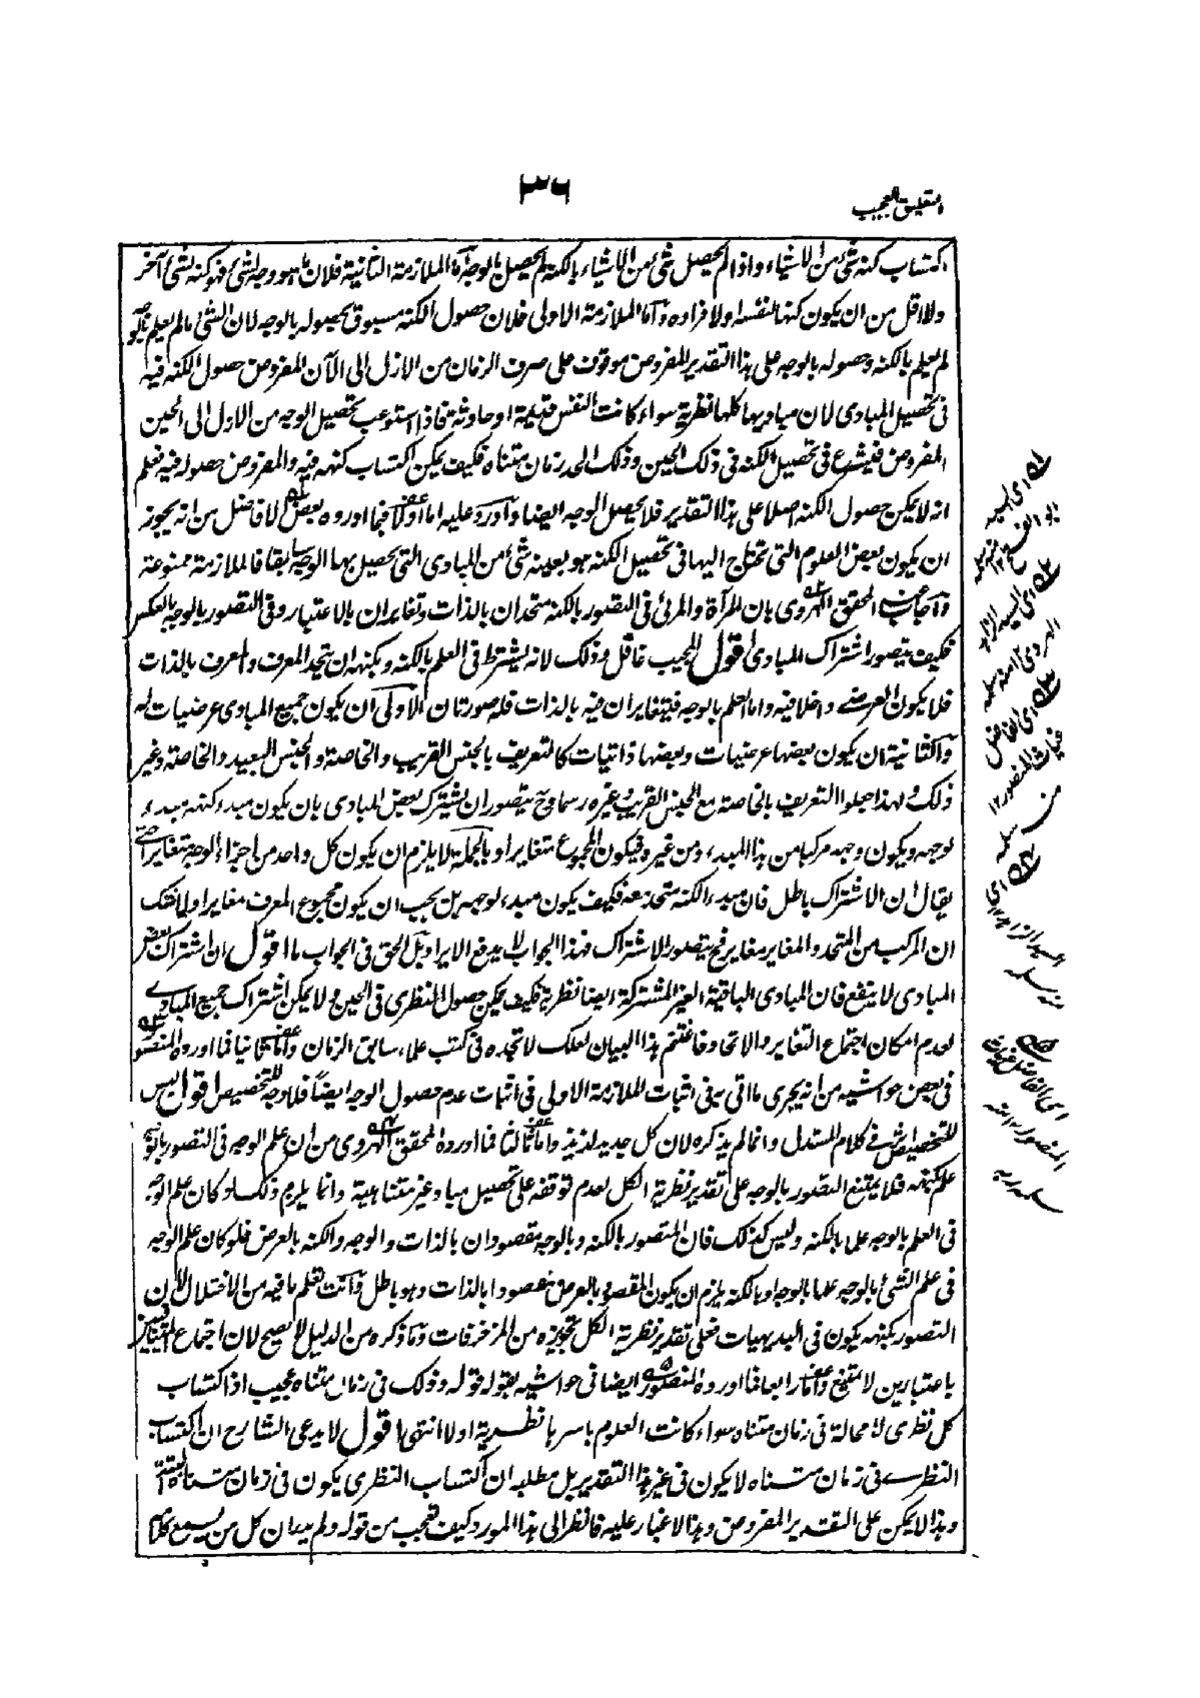 ٣٦
التعليق العجيب
اكتساب كنه شئ من الاشياء واذا لم يحصل شئ من الاشياء بالكنه لم يحصل بالوجه اما الملازمة الثانية فلان ما هو وجه لشئ فهو كنه لشئ آخر
ولا اقل من ان يكون كنها لنفسه او لافراده واما الملازمة الاولى فلان حصول الكنه مسبوق بحصوله بالوجه لان الشئ ما لم يعلم بالوجه
لم يعلم بالكنه وحصوله بالوجه على هذا التقدير المفروض موقوف على صرف الزمان من الازل الى الآن المفروض حصول الكنه فيه
فى تحصيل المبادى لان مباديها كلها نظرية سواء كانت النفس قديمة او حادثة فاذا استوعب تحصيل الوجه من الازل الى الحين
المفروض فيشرع فى تحصيل الكنه فى ذلك الحين وذلك الحد زمان متناه فكيف يمكن اكتساب كنهه فيه والمفروض حصوله فيه فعلم
انه لا يمكن حصول الكنه اصلا على هذا التقدير فلا يحصل الوجه ايضا واورد عليه اما اولا فبما اورده بعض الافاضل من انه يجوز
ان يكون بعض العلوم التى تحتاج اليها فى تحصيل الكنه هو بعينه شئ من المبادى التى يحصل بها الوجه سابقا فالملازمة ممنوعة
واجاب عنه المحقق الهروى بان المرآة والمرئى فى التصور بالكنه متحدان بالذات وتغايران بالاعتبار وفى التصور بالوجه بالعكس
فكيف يتصور اشتراك المبادى اقول المجيب غافل وذلك لانه يشترط فى العلم بالكنه وبكنهه ان يتحد المعرف والمعرف بالذات
فلا يكون العرضى داخلا فيه واما العلم بالوجه فيتغايران فيه بالذات فله صورتان الاولى ان يكون جميع المبادى عرضيات له
والثانية ان يكون بعضها عرضيات وبعضها ذاتيات كالتعريف بالجنس القريب والخاصة والجنس البعيد والخاصة وغير
ذلك ولهذا جعلوا التعريف بالخاصة مع الجنس القريب وغيره رسما وح يتصور ان يشترك بعض المبادى بان يكون مبدء كنهه مبدء
لوجهه ويكون وجهه مركبا من هذا المبدء ومن غيره فيكون المجموع متغايرا وبالجملة لا يلزم ان يكون كل واحد من اجزاء الوجه متغايرا حتى
يقال ان الاشتراك باطل فان مبدء الكنه متحد معه فكيف يكون مبدء لوجهه بل يجب ان يكون مجموع المعرف مغايرا ولا شك
ان المركب من المتحد والمغاير مغاير فح يتصور الاشتراك فهذا الجواب لا يدفع الايراد بل الحق فى الجواب ما اقول ان اشتراك بعض
المبادى لا ينفع فان المبادى الباقية الغير المشتركة ايضا نظرية فكيف يمكن حصول النظرى فى الحين ولا يمكن اشتراك جميع المبادى
لعدم امكان اجتماع التغاير والاتحاد فاغتنم هذا البيان لعلك لا تجده فى كتب علماء سابق الزمان واما ثانيا فبما اورده المنصور
فى بعض حواشيه من انه يجرى ما اتى به فى اثبات الملازمة الاولى فى اثبات عدم حصول الوجه ايضا فلا وجه للتخصيص اقول ليس
للتخصيص اثر فى كلام المستدل وانما لم يذكره لان كل جديد لذيذ واما ثالثا فبما اورده المحقق الهروى من ان علم الوجه فى التصور بالوجه
علم بكنهه فلا يمتنع التصور بالوجه على تقدير نظرية الكل لعدم توقفه على تحصيل مباد غير متناهية وانما يلزم ذلك لو كان علم الوجه
فى العلم بالوجه علما بالكنه وليس كذلك فان المتصور بالكنه وبالوجه مقصودان بالذات والوجه والكنه بالعرض فلو كان علم الوجه
فى علم الشئ بالوجه علما بالوجه او بالكنه يلزم ان يكون المقصود بالعرض مقصودا بالذات وهو باطل وانت تعلم ما فيه من الاختلال لان
التصور بكنهه يكون فى البديهيات فعلى تقدير نظرية الكل تجويزه من المزخرفات وما ذكره من الدليل لا يصح لان اجتماع المتنافيين
باعتبارين لا يمتنع واما رابعا فبما اورده المنصور ايضا فى حواشيه بقوله قوله وذلك فى زمان متناه عجيب اذ اكتساب
كل نظرى لا محالة فى زمان متناه سواء كانت العلوم باسرها نظرية او لا انتهى اقول لا يدعى الشارح ان اكتساب
النظرى فى زمان متناه لا يكون فى غير هذا التقدير بل مطلبه ان اكتساب النظرى يكون فى زمان متناه البتة
وهذا لا يمكن على التقدير المفروض وهذا لا غبار عليه فانظر الى هذا المورد كيف تعجب من قوله ولم يدر ان كل من يسمع كلامه
اى السيد
ابو الفتح
اى السيد الزاهد
الهروى ١٢ منه سلمه
اى الفاضل
غياث المنصور ١٢
منه سلمه
اى
السيد الزاهد الهروى
اى الفاضل غياث
المنصور